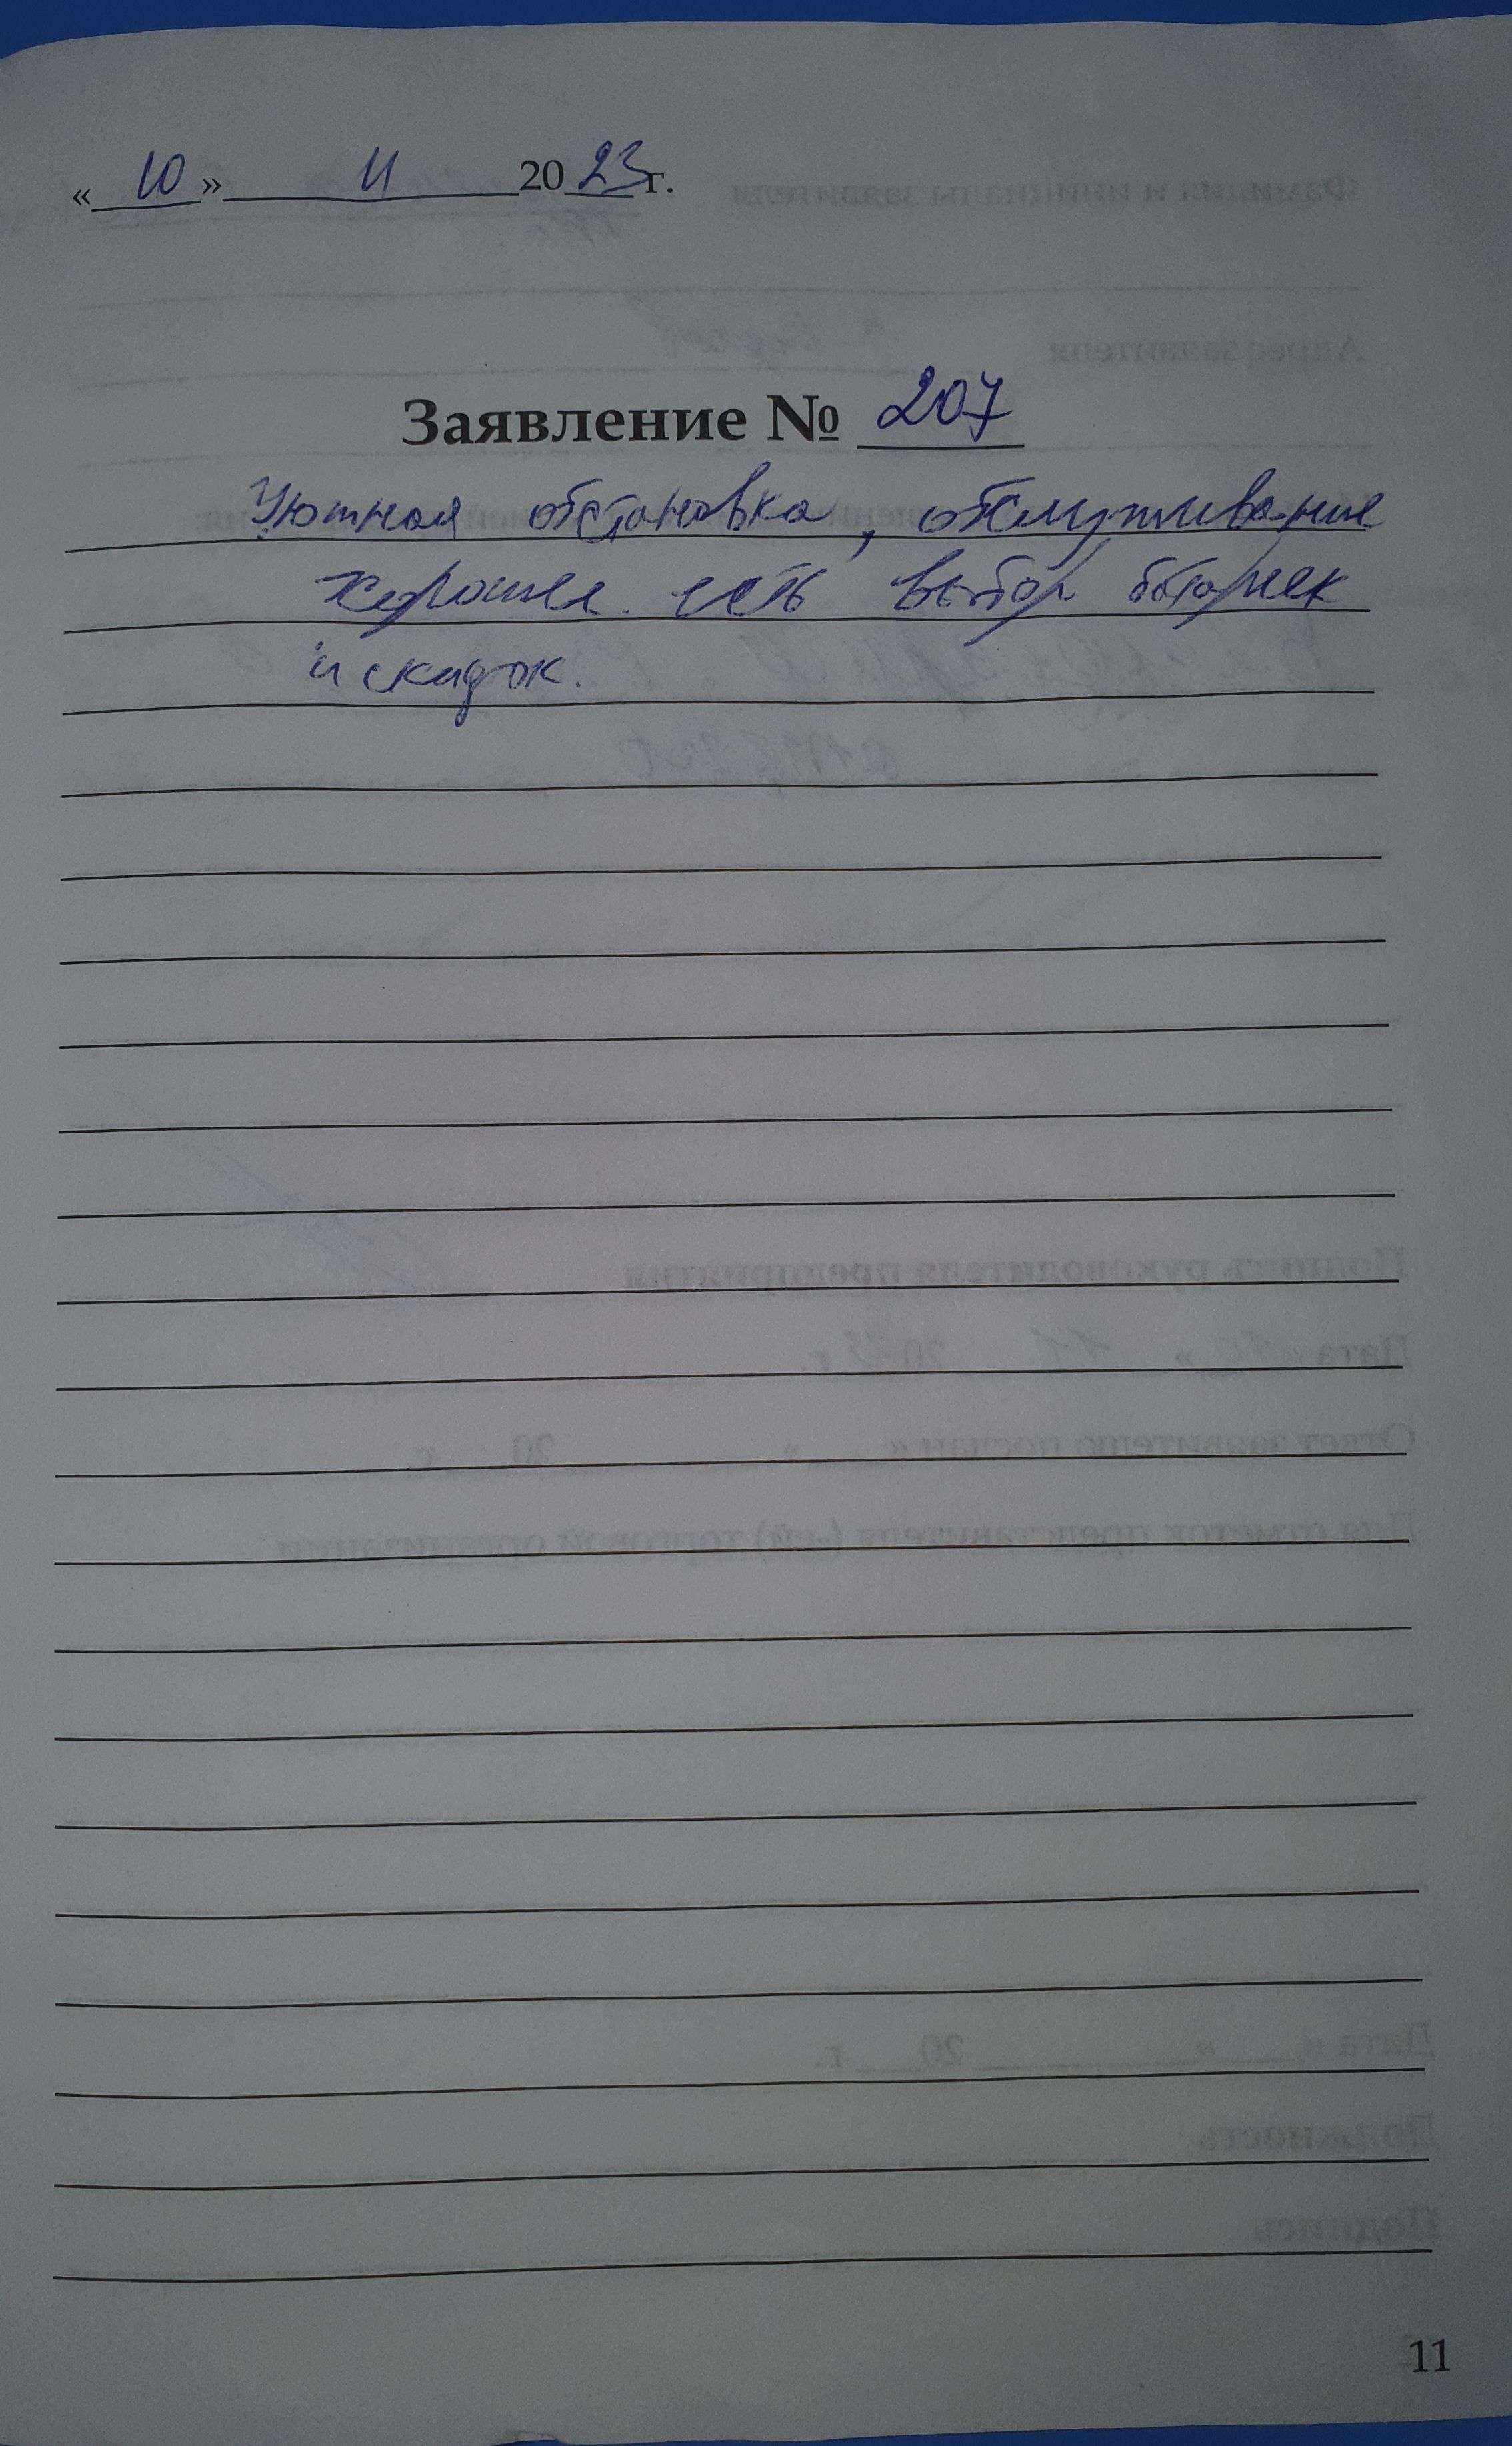 « 10 » 11 20 23 г.
Заявление № 207
Уютная обстановка, обслуживание
хорошее. есть выбор батареек
и скидок.
11